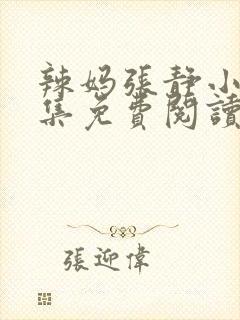 辣妈張静小
集免費閱讀
張迎偉